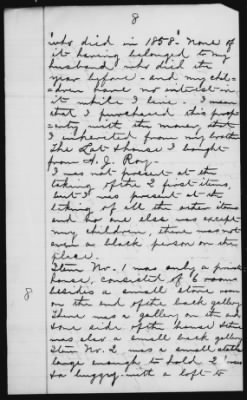 8
who died in 1858. None of
it having belonged to my
husband who died the
year before - and my chil-
dren have no interest in
it while I live. I mean
that I purchased this prop-
erty with the money that
I inherited from my brother
The Lot & house I bought
from H. J. Ray.
I was not present at the
taking of the 2 first items,
but I was present at the
taking of all the other items
and no one else was except
my children, there was not
even a black person on the
place.
Item No. 1 was only a
house, consisted of 6 rooms
besides a small store room
on the end of the back gallery
There was a gallery on the
same side of the house there
was also a small back gallery
Item No. 2 was a small stable
large enough to hold 2
& a buggy - with a loft to
8